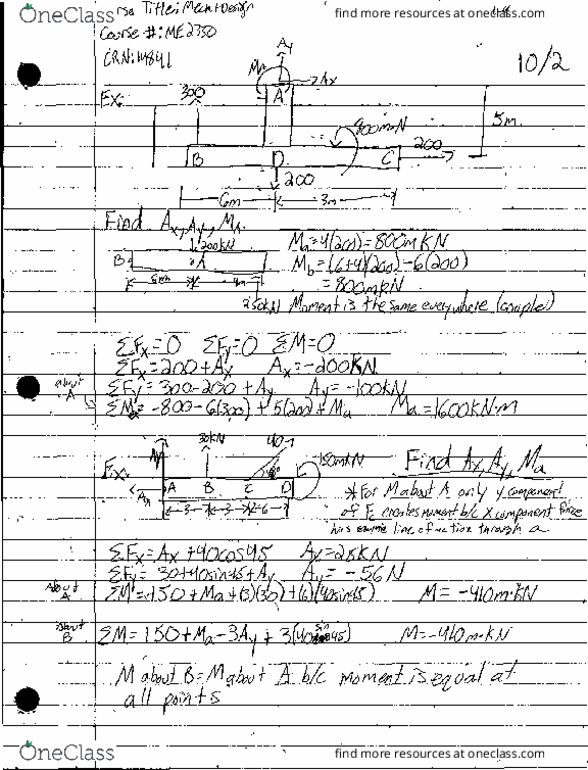 OneClass find more resources at oneclass.com
Title: Mecht Design
Course #: ME2350
CRN: 14841
10/2
Ay
Ma
Ax
A
Ex:
300
800m·N
5m
200
B D C
200
6m 3m
Find Ax, Ay, Ma
200kN
B A
6m 4m
Ma = 4(200) = 800mKN
Mb = (6+4)(200) - 6(200)
= 800mkN
Moment is the same everywhere (couple)
ΣFx=0 ΣFy=0 ΣM=0
ΣFx=200+Ax Ax=-200KN
ΣFy=300-200+Ay Ay=-100KN
about A
ΣM= -800-6(300)+5(200)+Ma Ma=1600KN·m
30KN
40
150mKN
Ex:
Ay
Ax
A B C D
3 3 6
Find Ax, Ay, Ma
*For M about A only y component
of Fc creates moment b/c x component force
has same line of action through a
ΣFx=Ax+40cos45 Ax=28KN
ΣFy=30+40sin45+Ay Ay=-56N
About A
ΣM=150+Ma+(3)(30)+(6)(40sin45) M=-410m·KN
about B
ΣM=150+Ma-3Ay+3(40sin45) M=-410m·KN
M about B = M about A b/c moment is equal at
all points
OneClass find more resources at oneclass.com